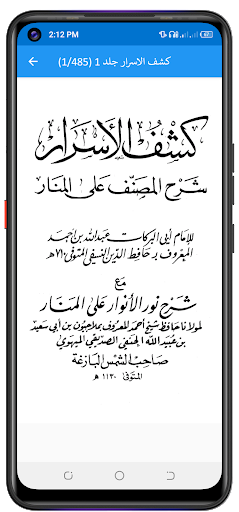 2:12 PM
کشف الاسرار جلد 1 (1/485)
كشف الأسرار
شرح المصنف على المنار
للإمام أبي البركات عبد الله بن أحمد
المعروف بحافظ الدين النسفي المتوفى ٧١٠هـ
مع
شرح نور الأنوار على المنار
لمولانا حافظ شيخ أحمد المعروف بملاجيون بن أبي سعيد
بن عبيد الله الحنفي الصديقي الميهوي
صاحب الشمس البازغة
المتوفى ١١٣٠ هـ